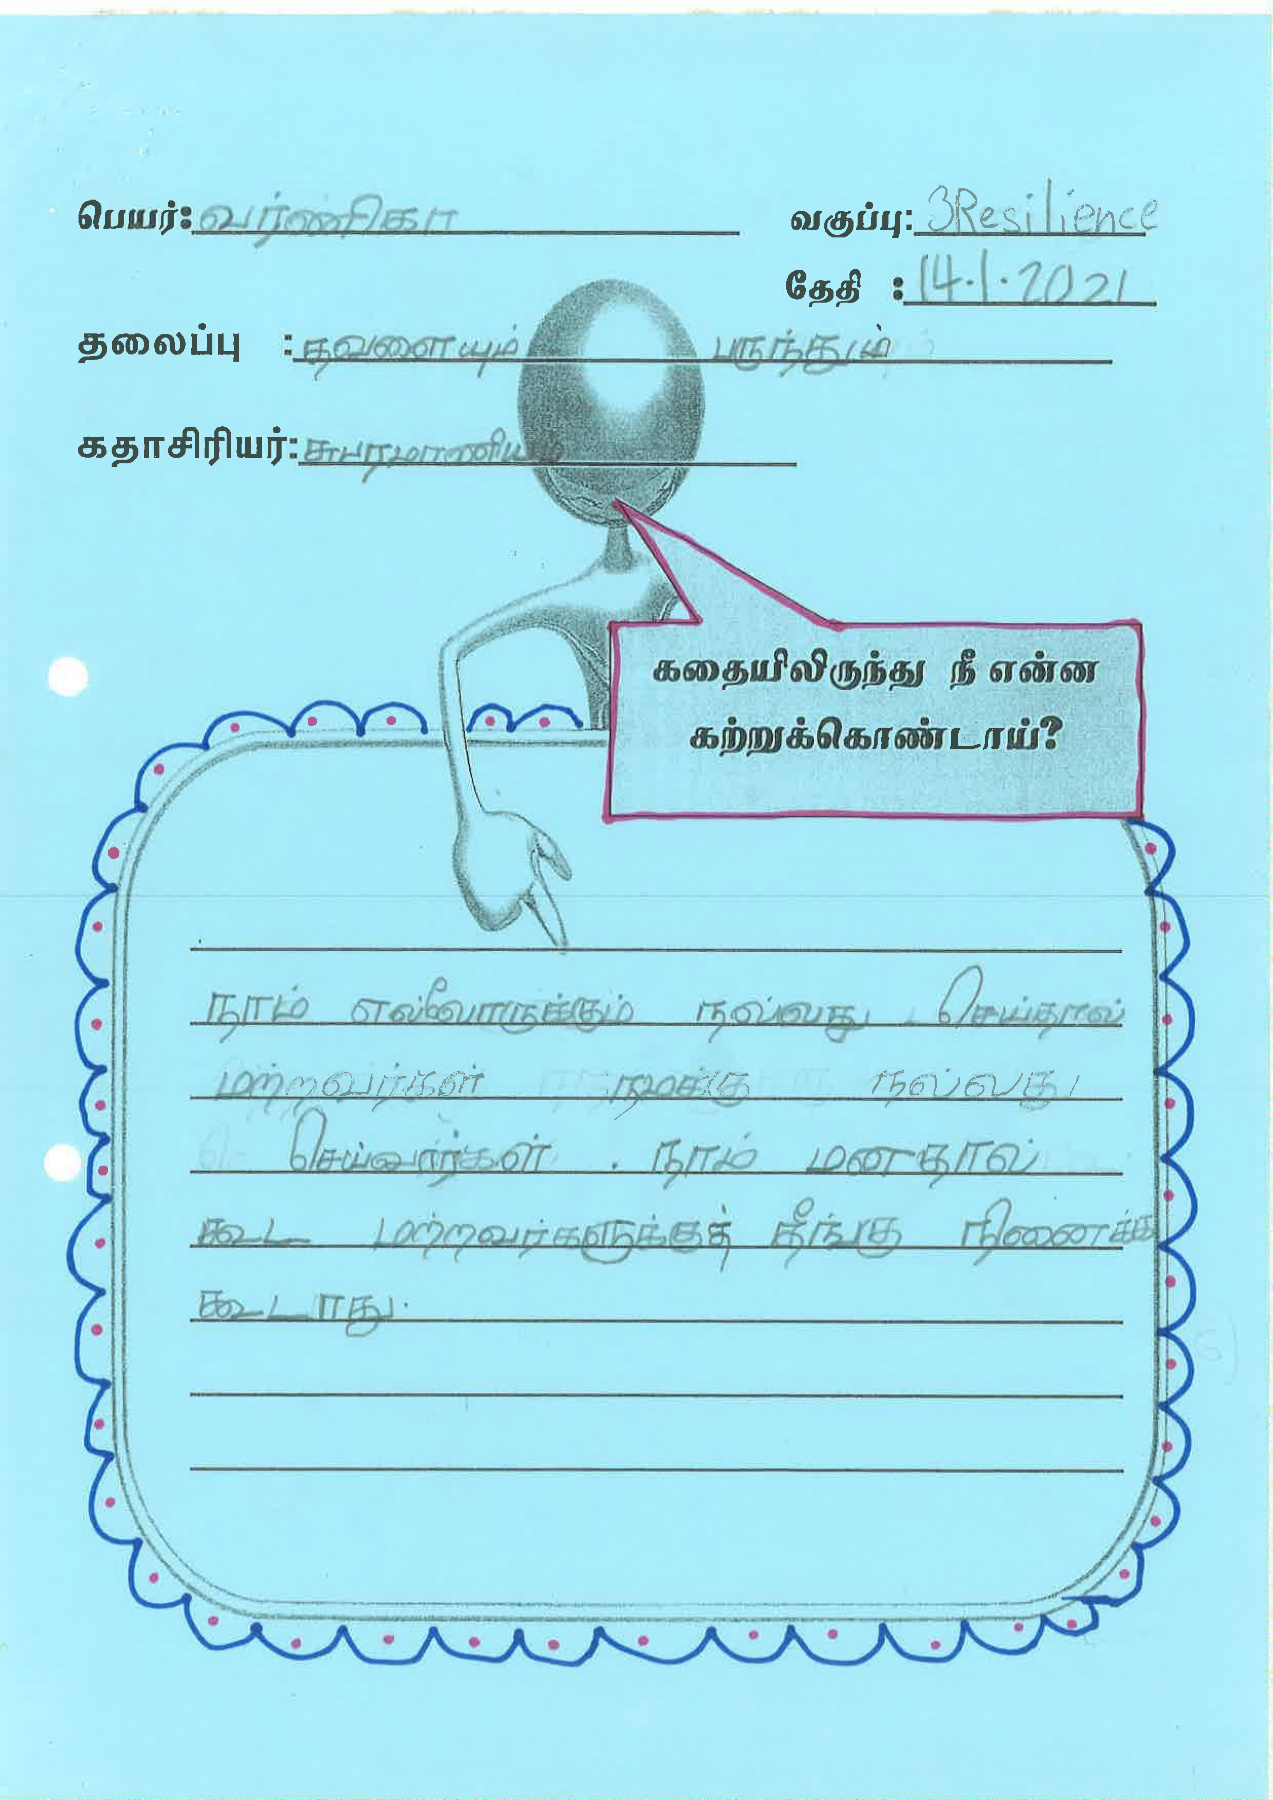 பெயர்: வர்ணிகா வகுப்பு: 3Resilience
தேதி : 14.1.2021
தலைப்பு : தவளையும் பருந்தும்
கதாசிரியர்: சுபரமாணியம்
கதையிலிருந்து நீ என்ன
கற்றுக்கொண்டாய்?
நாம் எல்லோருக்கும் நல்லது செய்தால்
மற்றவர்கள் நமக்கு நல்லது
செய்வார்கள். நாம் மனதால்
கூட மற்றவர்களுக்குத் தீங்கு நினைக்க
கூடாது.